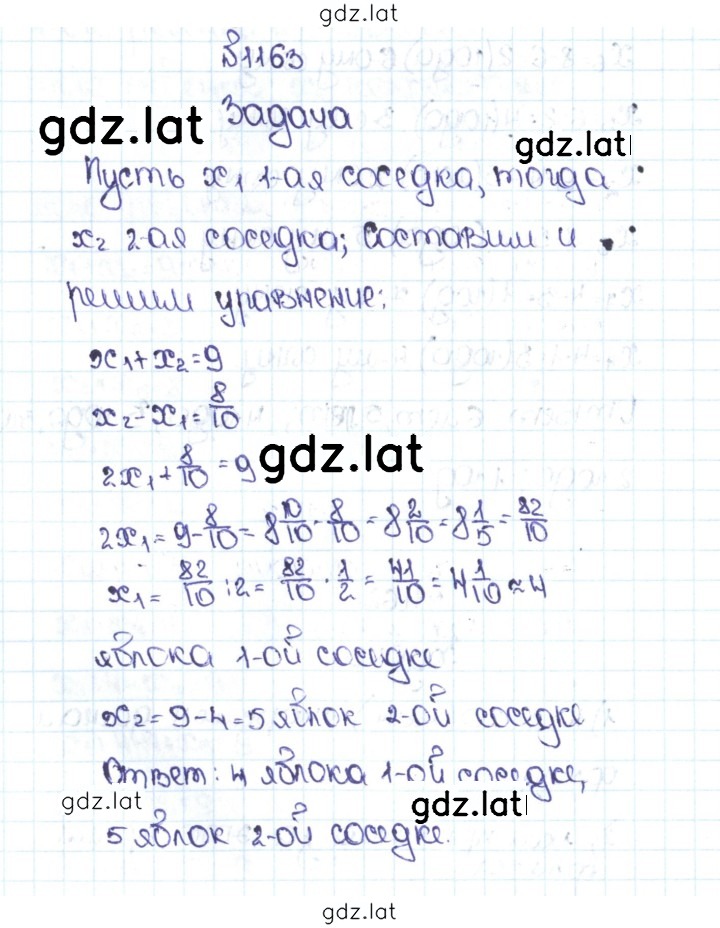 gdz.lat
№1163
gdz.lat Задача
gdz.lat
Пусть x₁ 1-ая соседка, тогда
x₂ 2-ая соседка; составим и
решим уравнение:
x₁+x₂=9
x₂-x₁=8/10
2x₁+8/10=9 gdz.lat
2x₁=9-8/10=8 10/10-8/10=8 2/10=8 1/5=82/10
x₁=82/10:2=82/10·1/2=41/10=4 1/10≈4
яблока 1-ой соседке
x₂=9-4=5 яблок 2-ой соседке
Ответ: 4 яблока 1-ой соседке,
gdz.lat gdz.lat
5 яблок 2-ой соседке.
gdz.lat